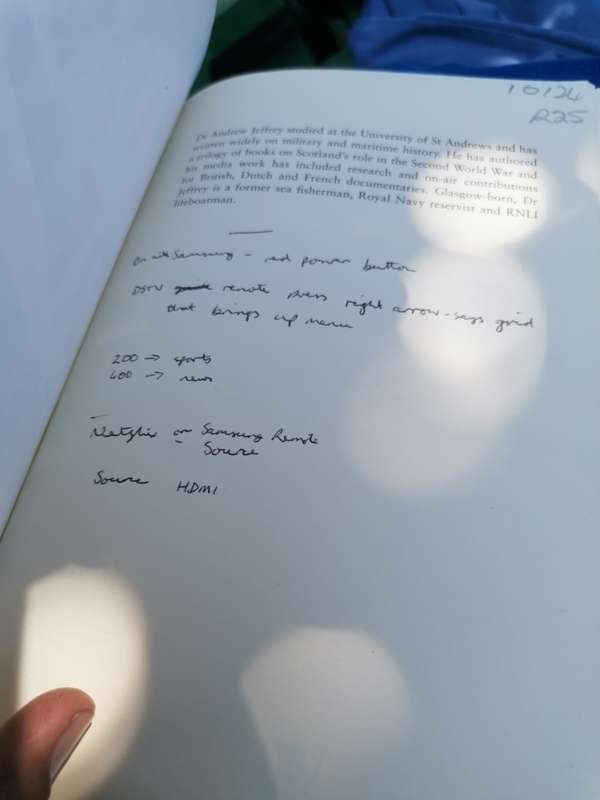 10124
R25
Dr Andrew Jeffrey studied at the University of St Andrews and has
written widely on military and maritime history. He has authored
a trilogy of books on Scotland's role in the Second World War and
his media work has included research and on-air contributions
for British, Dutch and French documentaries. Glasgow-born, Dr
Jeffrey is a former sea fisherman, Royal Navy reservist and RNLI
lifeboatman.
on Samsung - red power button
DSTV remote press right arrow - says grid
that brings up menu
200 → sports
400 → news
Netflix on Samsung Remote
- Source
Source HDMI